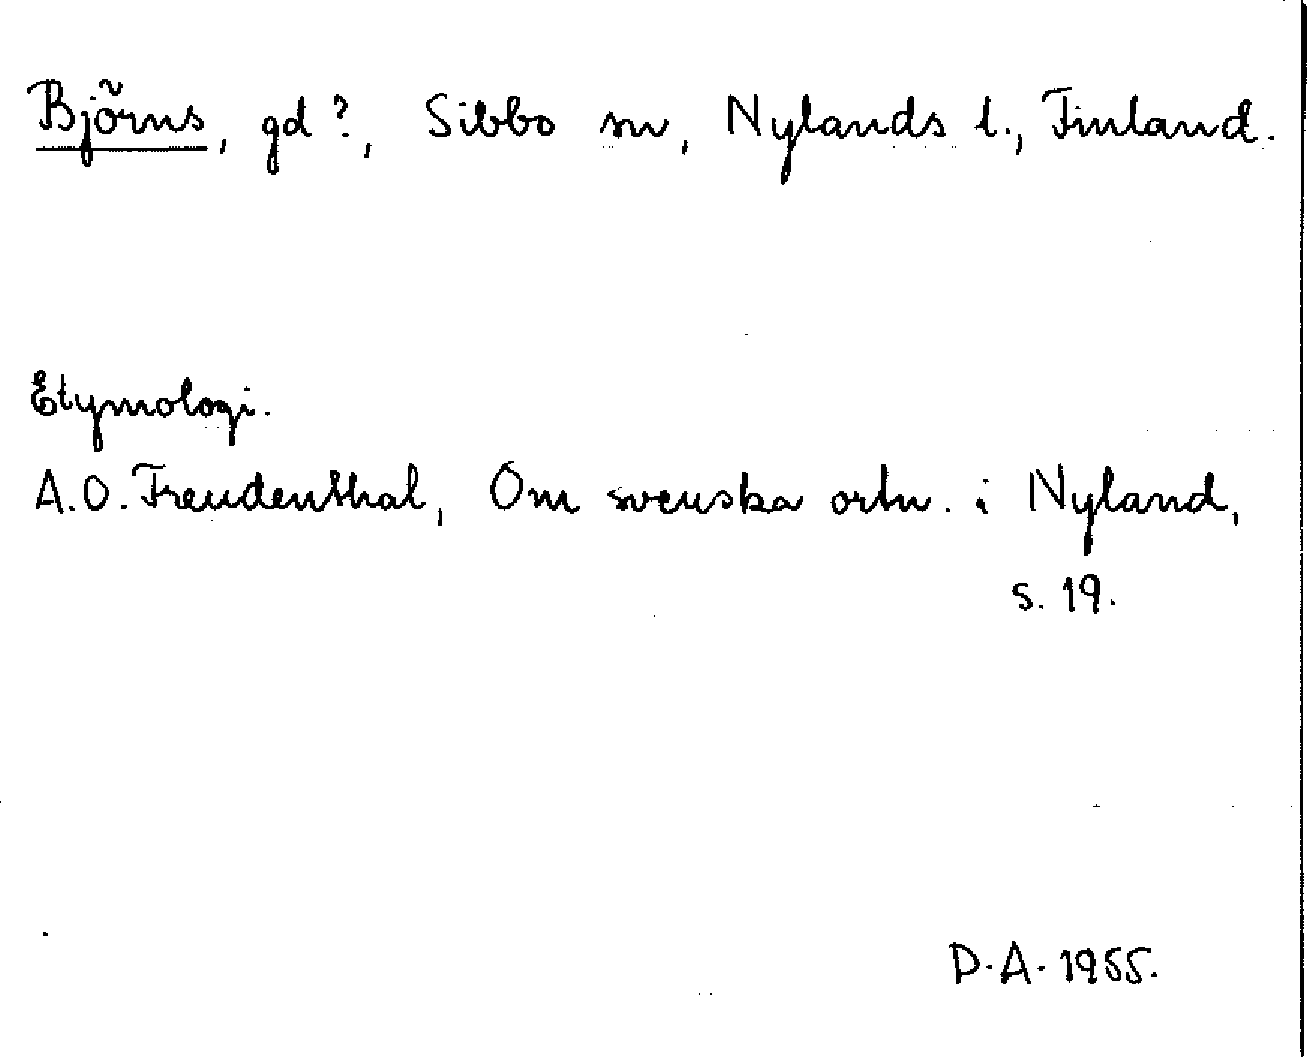 Björns, gd?, Sibbo sn, Nylands l., Finland.
Etymologi.
A.O. Freudenthal, Om svenska ortn. i Nyland,
s. 19.
D.A. 1955.